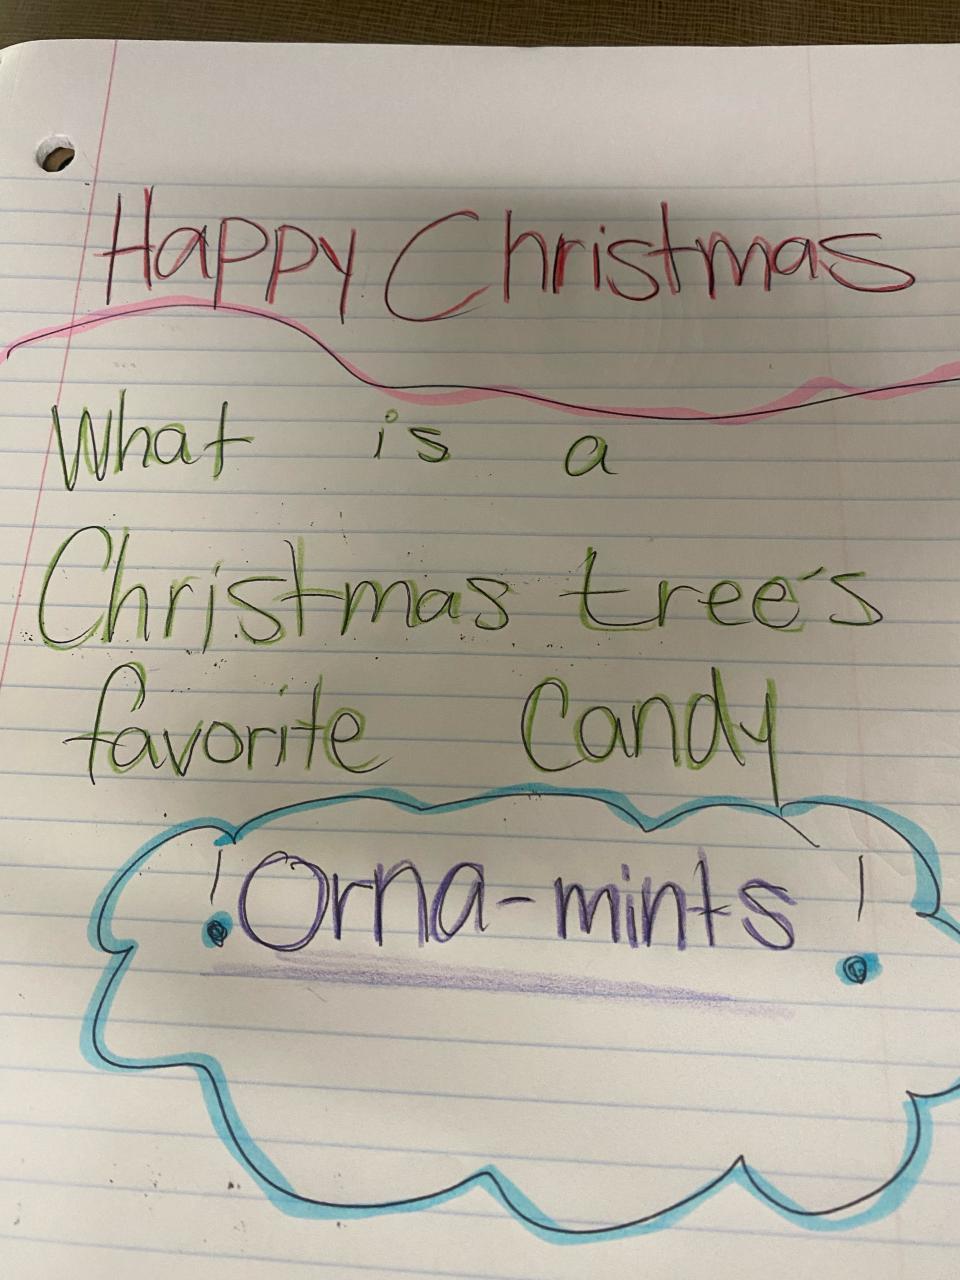 Happy Christmas
What is a
Christmas tree's
favorite Candy
! Orna-mints !